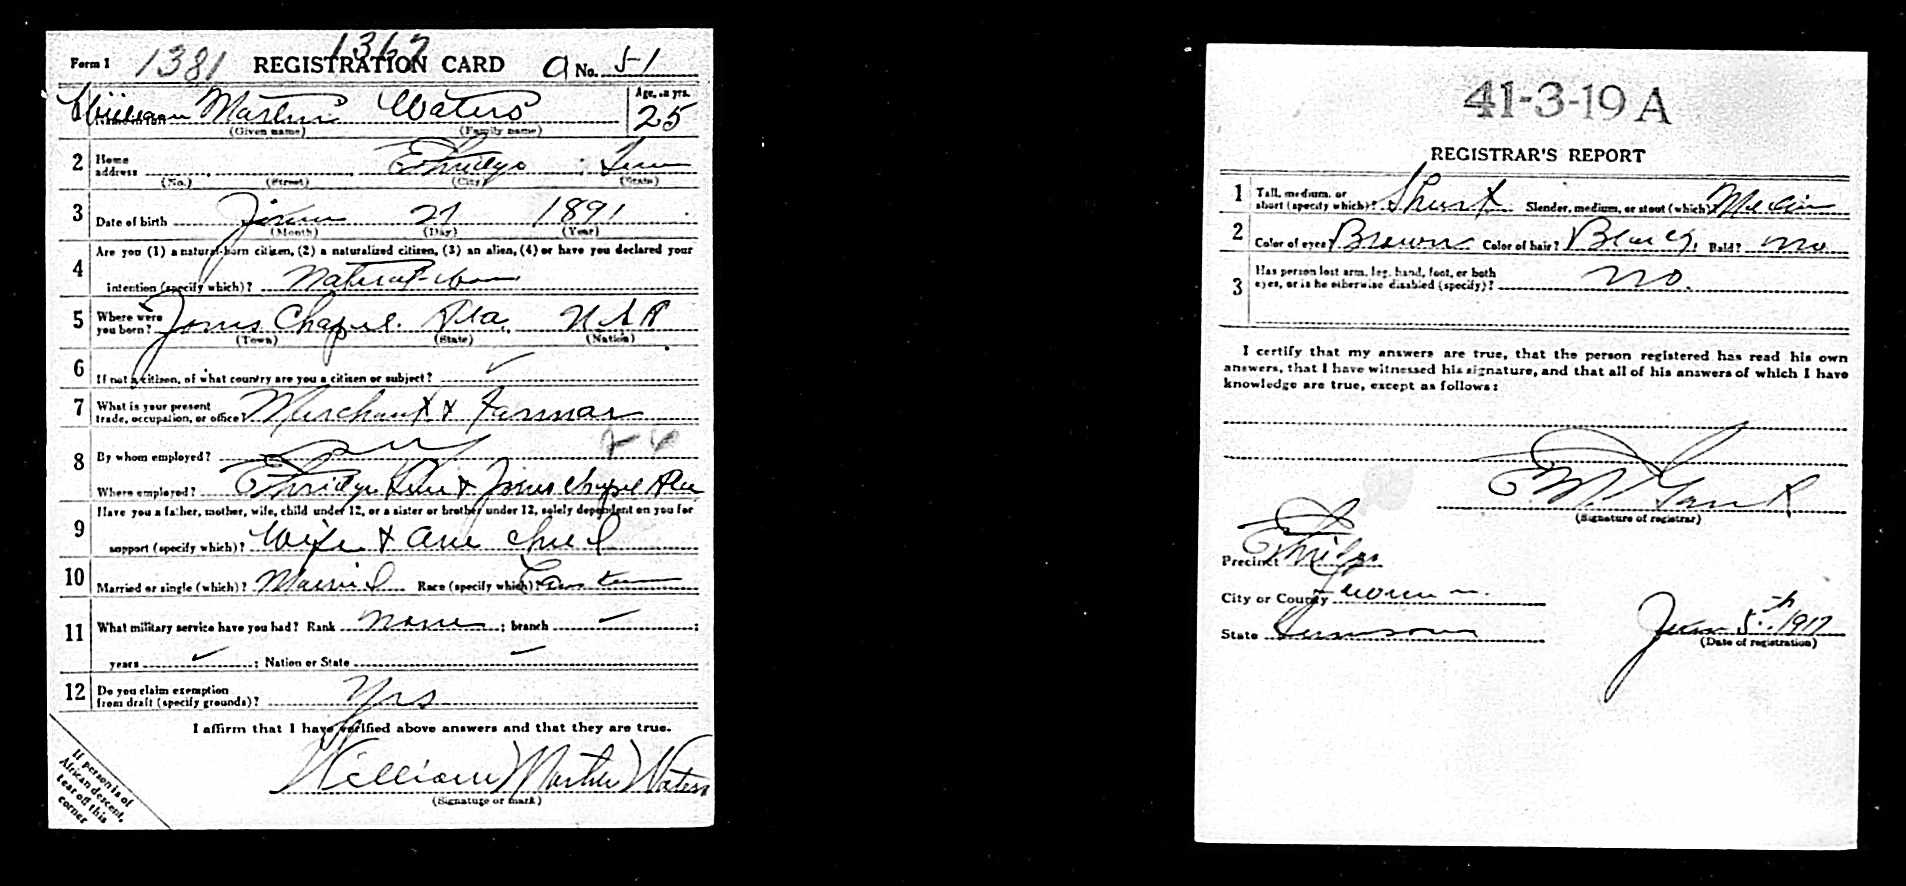 Form 1 1381 REGISTRATION CARD 1367 a No. 51
William Martin Waters Age, in yrs. 25
(Given name) (Family name)
2 Home address Ethridge Tenn
(No.) (Street) (City) (State)
3 Date of birth 21 1891
(Month) (Day) (Year)
4 Are you (1) a natural-born citizen, (2) a naturalized citizen, (3) an alien, (4) or have you declared your
intention (specify which)? Natural-born
5 Where were you born? Jones Chapel. Ala. USA
(Town) (State) (Nation)
6 If not a citizen, of what country are you a citizen or subject? ✓
7 What is your present trade, occupation, or office? Merchant & Farmar
8 By whom employed?
Where employed? Ethridge Tenn & Jones Chapel Ala
9 Have you a father, mother, wife, child under 12, or a sister or brother under 12, solely dependent on you for
support (specify which)? Wife & one child
10 Married or single (which)? Married Race (specify which)?
11 What military service have you had? Rank None ; branch — ;
years ✓ ; Nation or State —
12 Do you claim exemption from draft (specify grounds)? Yes
I affirm that I have verified above answers and that they are true.
William Martin Waters
(Signature or mark)
If person is of
African descent,
tear off this
corner
41-3-19 A
REGISTRAR'S REPORT
1 Tall, medium, or short (specify which)? Short Slender, medium, or stout (which)? Medium
2 Color of eyes? Brown Color of hair? Black Bald? No
3 Has person lost arm, leg, hand, foot, or both
eyes, or is he otherwise disabled (specify)? No.
I certify that my answers are true, that the person registered has read his own
answers, that I have witnessed his signature, and that all of his answers of which I have
knowledge are true, except as follows:
(Signature of registrar)
Precinct Ethridge
City or County
State Tennessee
June 5th 1917
(Date of registration)